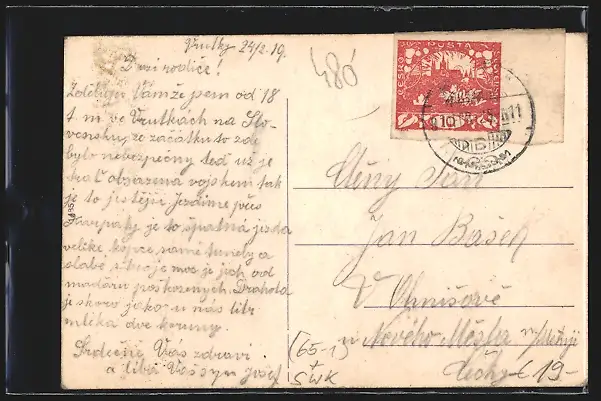 Vrutky 24/2.19.
Drazí rodiče!
Zděluji Vám že jsem od 18
t.m. ve Vrutkach na Slo-
vensku, ze začátku to zde
bylo nebezpečny teď už je
trať obsazena vojskem tak
je to jistější Jezdíme přes
Karpaty je to špatná jizda
velike kopce samé tunely a
slabé stroje moc je jich od
maďaru poškozenych. Drahota
je skoro jako u nás litr
mlíka dve koruny.
Srdečně Vás zdraví
a líbá Váš syn Josef
480
ČESKO
POŠTA
SLOVENSKÁ
Ctěný Pan
Jan Bašek
V Ohnišově
u Nového Města n/Metují
Čechy
(65-1)
SWK
€ 19-